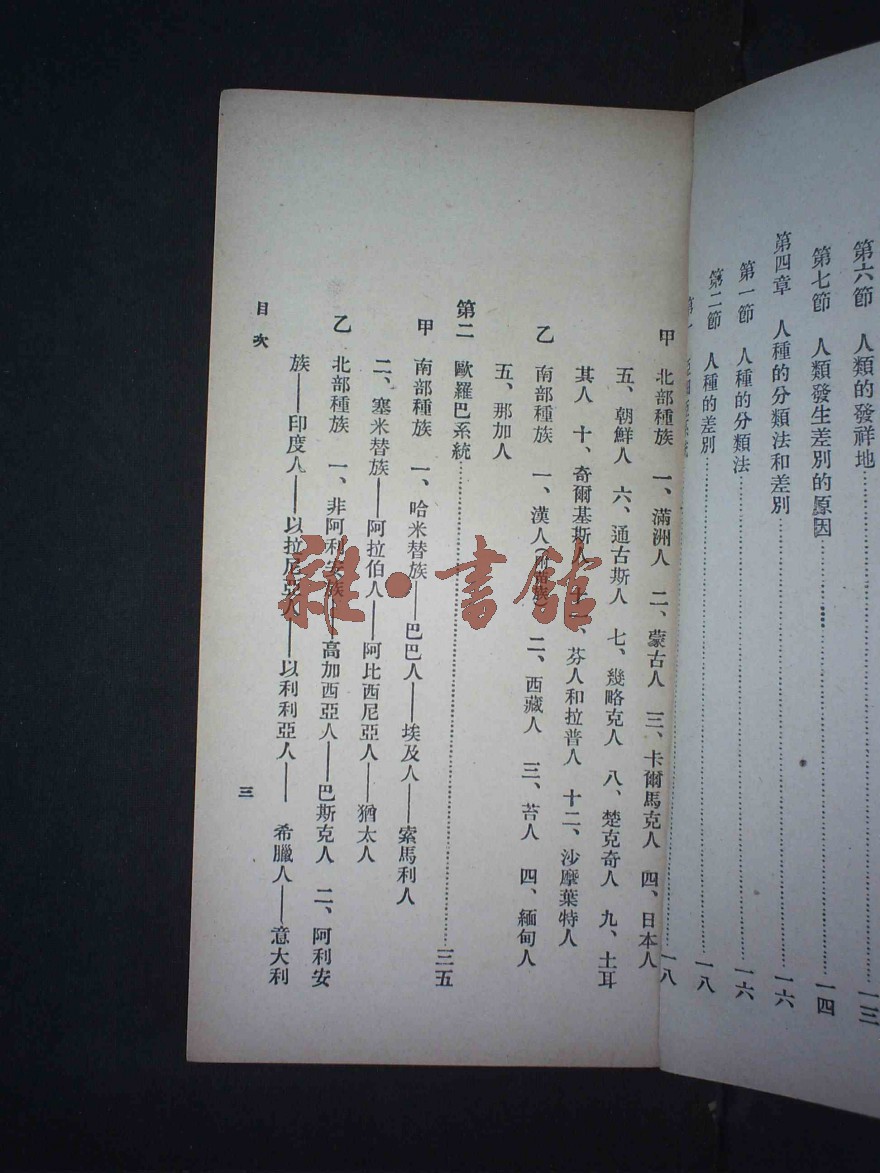 第六節 人類的發祥地……一三
第七節 人類發生差別的原因……一四
第四章 人種的分類法和差別……一六
第一節 人種的分類法……一六
第二節 人種的差別……一八
第一 系統……一八
甲 北部種族 一、滿洲人 二、蒙古人 三、卡爾馬克人 四、日本人
五、朝鮮人 六、通古斯人 七、幾略克人 八、楚克奇人 九、土耳
其人 十、奇爾基斯人 十一、芬人和拉普人 十二、沙摩葉特人
乙 南部種族 一、漢人 二、西藏人 三、苔人 四、緬甸人
五、那加人
第二 歐羅巴系統……三五
甲 南部種族 一、哈米替族——巴巴人——埃及人——索馬利人
二、塞米替族——阿拉伯人——阿比西尼亞人——猶太人
乙 北部種族 一、非阿利安族——高加西亞人——巴斯克人 二、阿利安
族——印度人——以拉尼亞人——以利利亞人——希臘人——意大利
目次
三
雜·書館